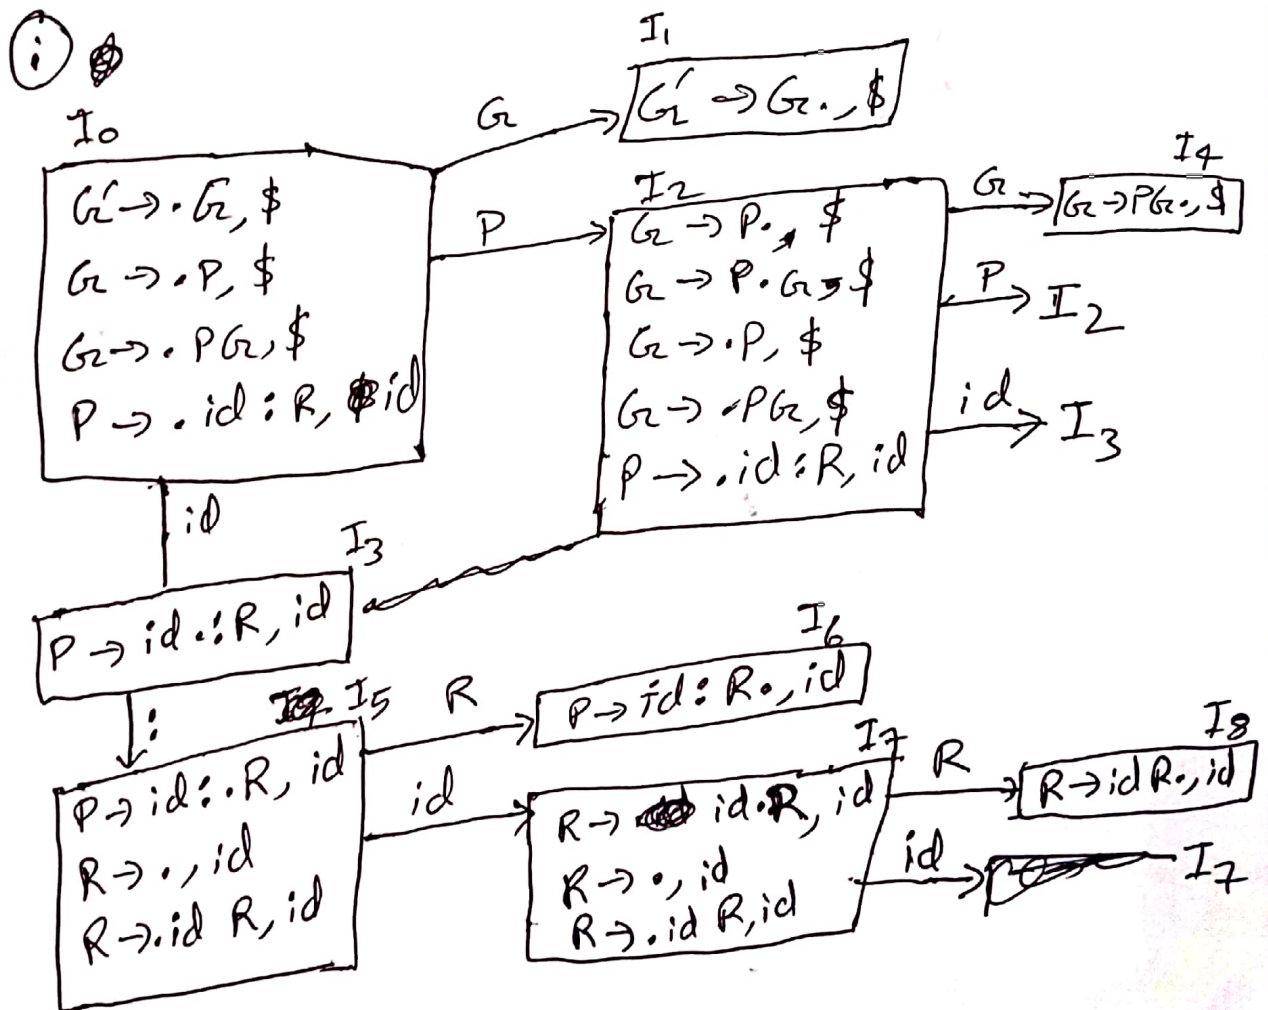 i
I₀
G' → .G, $
G → .P, $
G → .PG, $
P → .id : R, id
G
I₁
G' → G., $
P
I₂
G → P., $
G → P.G, $
G → .P, $
G → .PG, $
P → .id : R, id
G
I₄
G → PG., $
P
I₂
id
I₃
id
I₃
P → id .: R, id
:
I₅
P → id : .R, id
R → ., id
R → .id R, id
R
I₆
P → id : R., id
id
I₇
R → id.R, id
R → ., id
R → .id R, id
R
I₈
R → id R., id
id
I₇